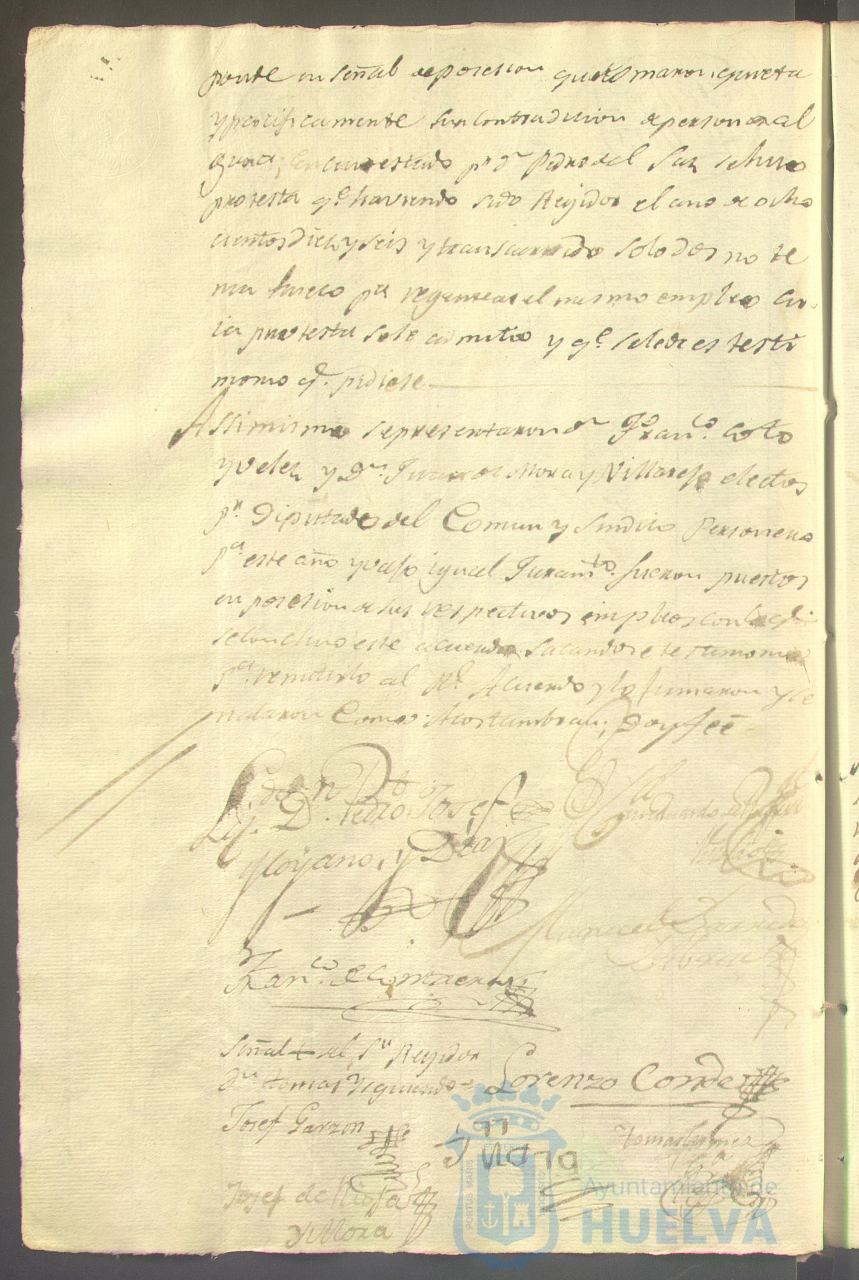 ponte en señal de posesion que tomaron, quieta
y pacificamente sin contradicion de persona al
guna; en cuio estado pr. Dn. Pedro del Saz se hizo
protesta qe. haviendo sido Regidor el año de ocho
cientos diez y seis y transcurrido solo dos no te
nia hueco pa. regentear el mismo empleo cu-
ia protesta se le admitio y qe. se le de el testi
monio qe. pidiese
Assimismo se presentaron Dn. Franco. Coto
y Velez y Dn. Juan de Mora y Villarejo electos
pr. Diputado del Comun y Sindico Personero
pa. este año y vajo igual Juramto. fueron puestos
en posesion de sus respectivos empleos con lo qe.
se concluio este acuerdo sacandose testimonio
pa. remitirlo al Rl. Acuerdo y lo firmaron y se
ñalaron Como Acostumbran; Doy fee
Liz. Dn. Pedro Josef
y Diaz
Manuel
Franco. de Contreras
Señal + del Sr. Regidor
Dn. Tomas Yzquierdo
Lorenzo Conde
Josef Garzon
Tomas Gomez
Mora
Josef de
y Mora
Ayuntamiento de
HUELVA